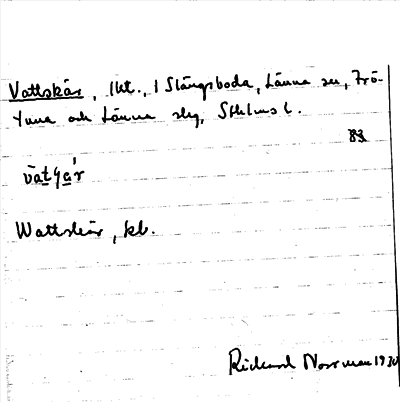 Vattskär, lkt., i Slängsboda, Länna sn, Frö-
tuna och Länna slg, Sthlms l.
83
Wattskär, kb.
Rickard Norrman 1930